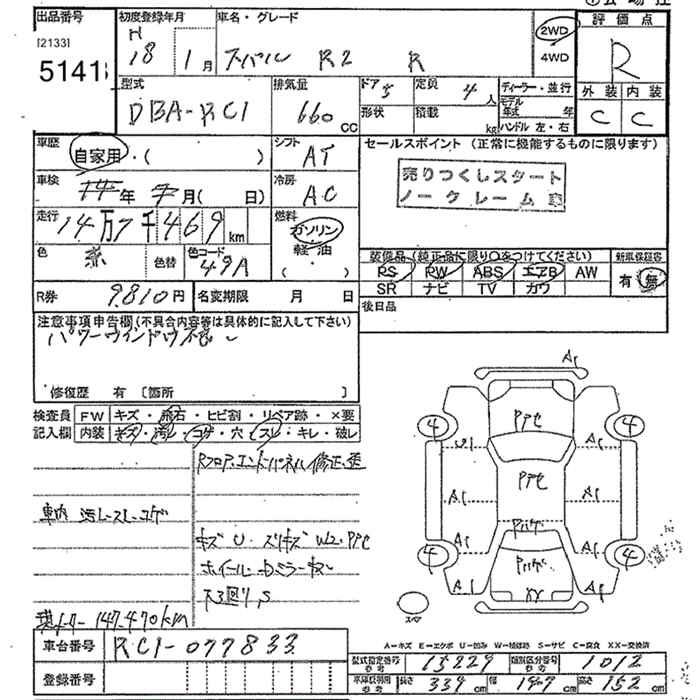 出品番号 初度登録年月 車名・グレード 評価点
[2133] H 18年 1月 スバル R2 R 2WD 4WD R
5141
型式 排気量 ドア 定員 ディーラー・並行 外装 内装
DBA-RC1 660cc 5 4人 モデル年式 年 C C
形状 積載 kg ハンドル 左・右
車歴 自家用・( ) シフト AT セールスポイント(正常に機能するものに限ります)
車検 年 月( 日) 冷房 AC 売りつくしスタート
ノークレーム車
走行 14万7千469km 燃料 ガソリン
軽油
( ・ )
色 赤 色替 色コード 49A 装備品(純正品に限り○をつけてください) 新車保証書
PS PW ABS エアB AW 有・無
SR ナビ TV カワ
R券 9810円 名変期限 月 日 後日品
注意事項申告欄(不具合内容等は具体的に記入して下さい)
パワーウインドウ不良
修復歴 有 〔箇所 〕
検査員 FW キズ・飛石・ヒビ割・リペア跡・×要
記入欄 内装 キズ・汚レ・コゲ・穴・スレ・キレ・破レ
Rフロア、エンドパネル修正、歪
車内 汚レ・スレ・コゲ
キズ U・スリキズ W2・PP
ホイール・ミラーキズ
下廻り S
147,470km
A1
4 PPC 4
U1 A1
A1 PPC A1
A1 A1
4 4
A1 XX A1
スペア
A=キズ E=エクボ U=凹み W=補修跡 S=サビ C=腐食 XX=交換済
車台番号 RC1-077833
型式指定番号 参考 15229 類別区分番号 参考 1012
登録番号
車庫証明用 参考 長さ 339cm 幅 147cm 高さ 152cm